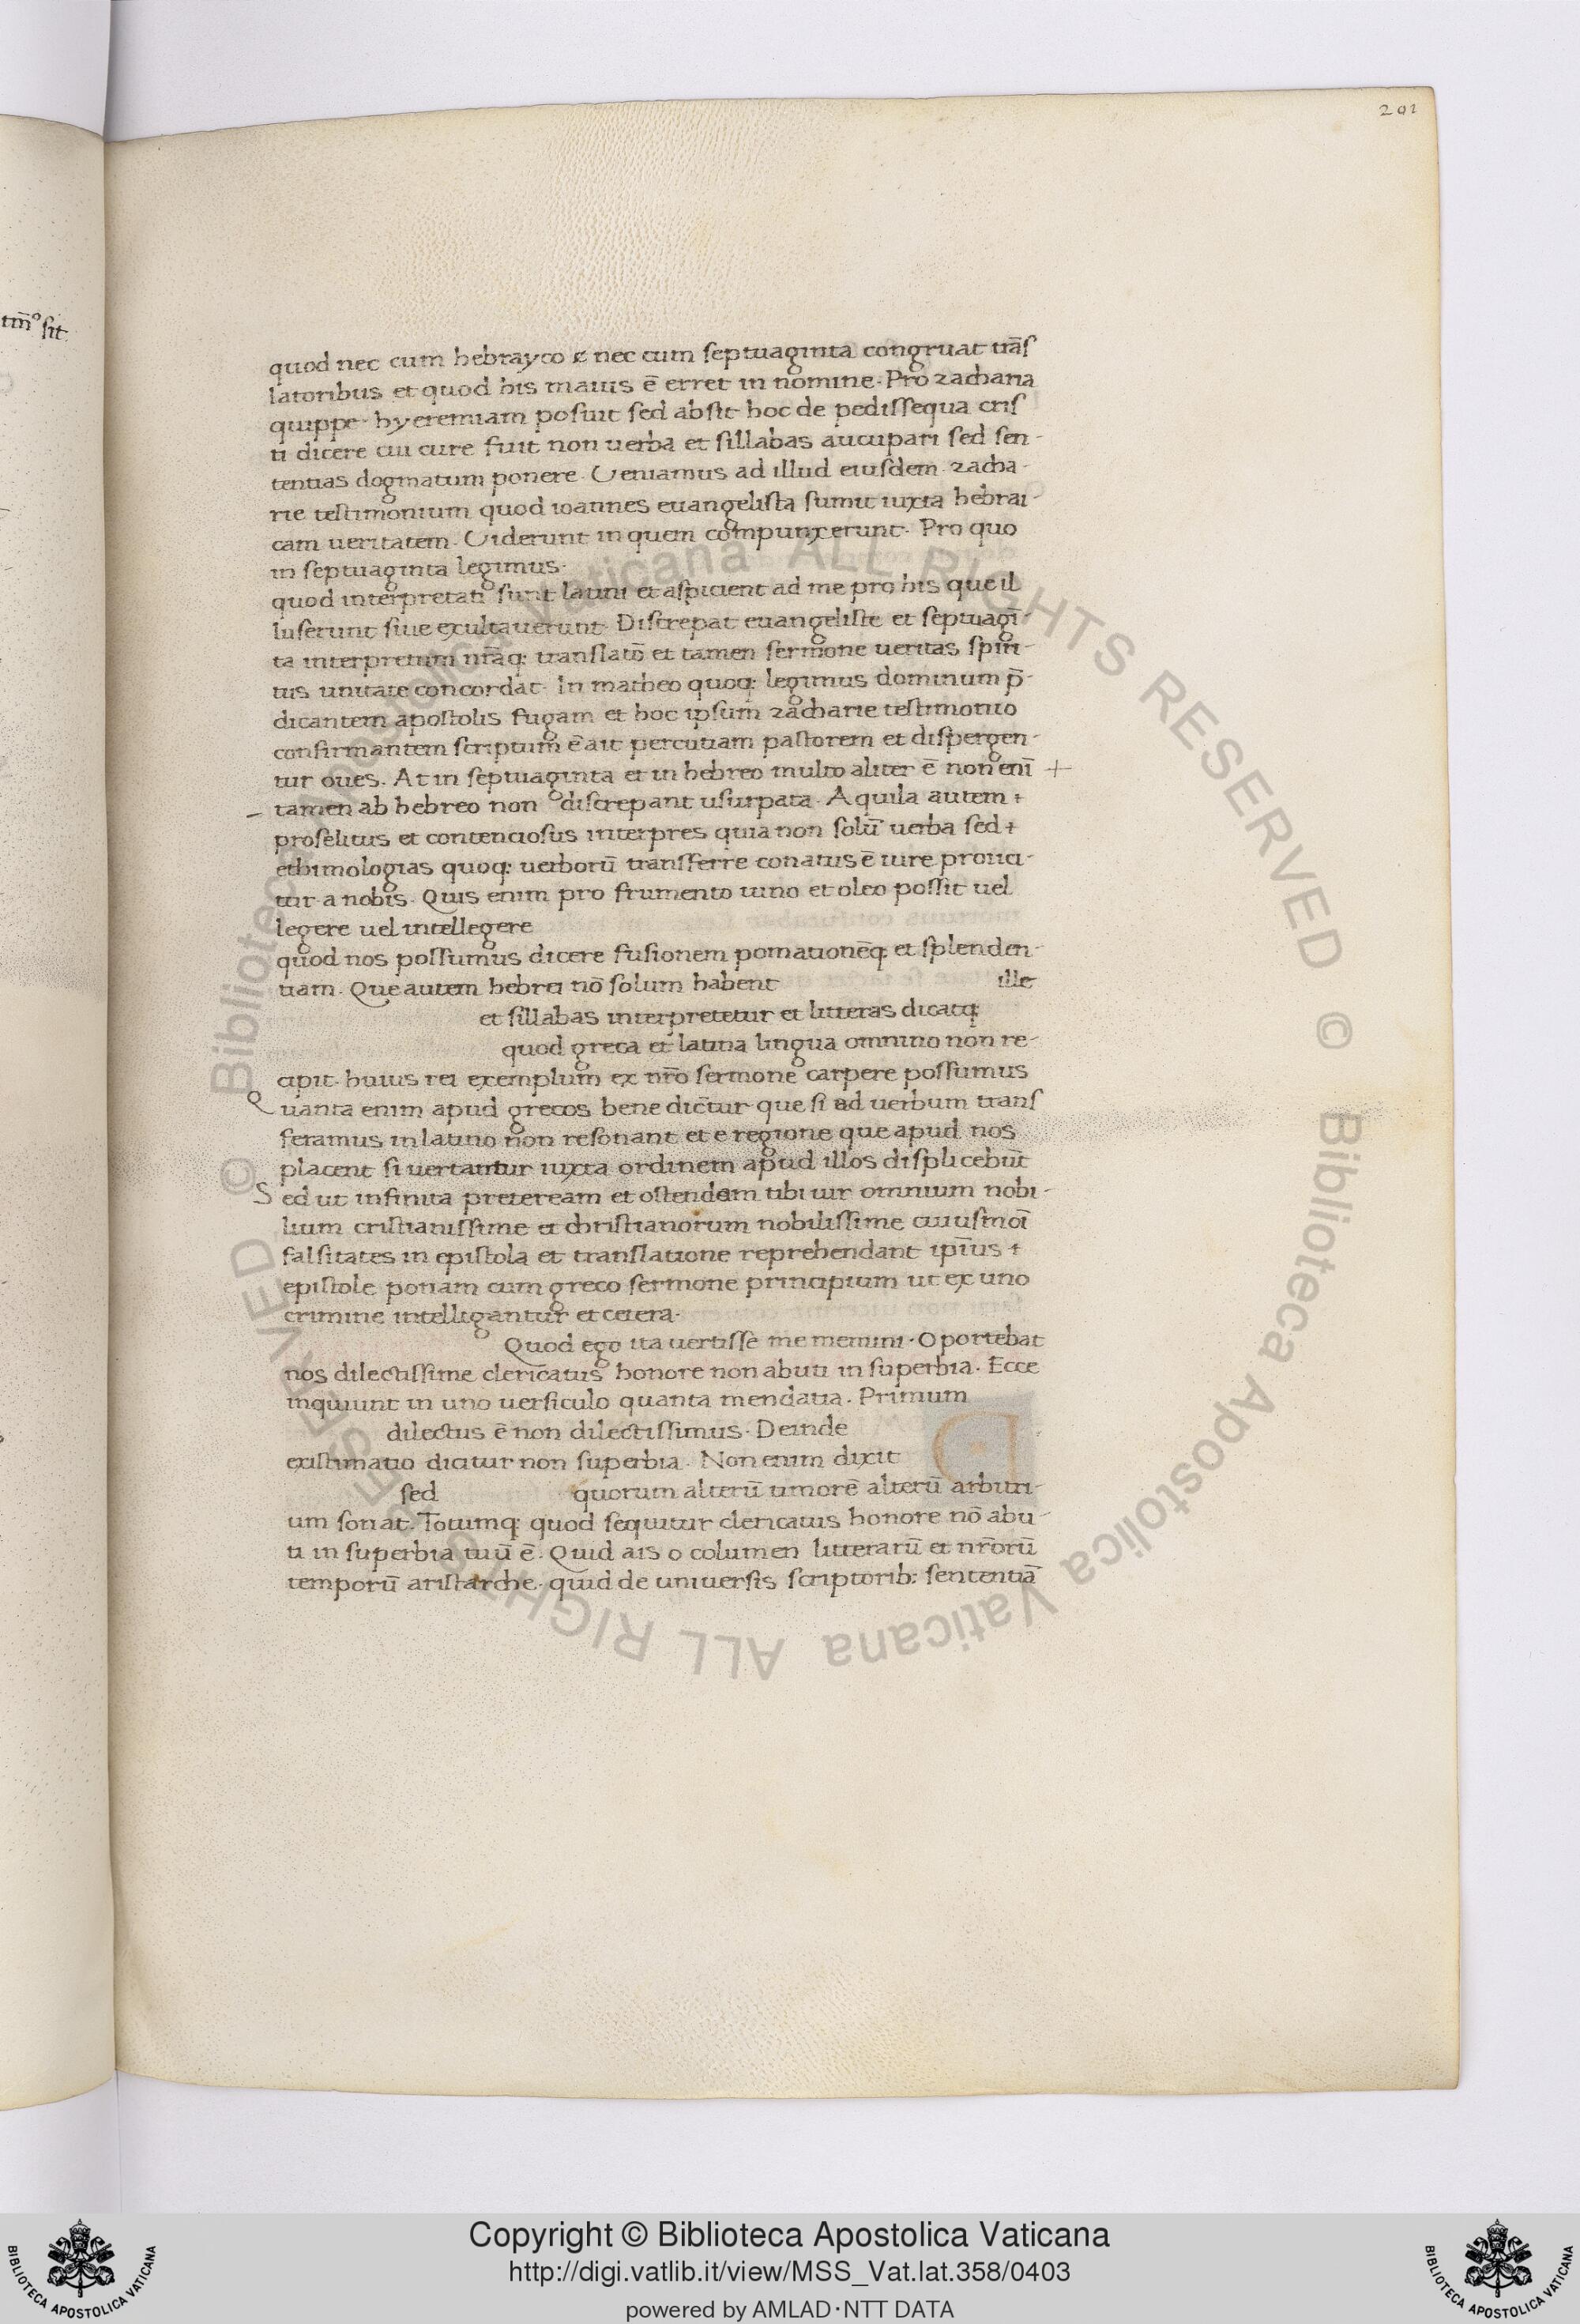 201
tm̄° sit
quod nec cum hebrayco & nec cum septuaginta congruat trās
latoribus et quod his maius ē erret in nomine. Pro zacharia
quippe hyeremiam posuit sed absit hoc de pedissequa cris
ti dicere cui cure fuit non uerba et sillabas aucupari sed sen-
tentias dogmatum ponere. Ueniamus ad illud eiusdem zacha-
rie testimonium quod ioannes euangelista sumit iuxta hebrai-
cam ueritatem. Uiderunt in quem compunxerunt. Pro quo
in septuaginta legimus.
quod interpretati sunt latini et aspicient ad me pro his que il
luserunt siue exultauerunt. Discrepat euangeliste et septuagī-
ta interpretum nr̄aq: translatō et tamen sermone ueritas spiri-
tus unitate concordat. In matheo quoq: legimus dominum p̄-
dicantem apostolis fugam et hoc ipsum zacharie testimonio
confirmantem scriptum ē ait percutiam pastorem et dispergen-
tur oues. At in septuaginta et in hebreo multo aliter ē non enī +
- tamen ab hebreo non discrepant usurpata. Aquila autem +
proselitus et contenciosus interpres quia non solū uerba sed +
ethimologias quoq: uerborū transferre conatus ē iure proici-
tur a nobis. Quis enim pro frumento uino et oleo possit uel
legere uel intellegere
quod nos possumus dicere fusionem pomationēq: et splenden-
tiam. Que autem hebrei nō solum habent ille
et sillabas interpretetur et litteras dicatq:
quod greca et latina lingua omnino non re-
cipit. huius rei exemplum ex nr̄o sermone carpere possumus
Quanta enim apud grecos bene dicītur que si ad uerbum trans
feramus in latino non resonant et e regione que apud nos
placent si uertantur iuxta ordinem apud illos displicebūt
Sed ut infinita preteream et ostendam tibi uir omnium nobi-
lium cristianissime et christianorum nobilissime cuiusmōi
falsitates in epistola et translatione reprehendant ipīus +
epistole ponam cum greco sermone principium ut ex uno
crimine intelligantur et cetera.
Quod ego ita uertisse me memini. Oportebat
nos dilectissime clericatus honore non abuti in superbia. Ecce
inquiunt in uno uersiculo quanta mendatia. Primum
dilectus ē non dilectissimus. Deinde
existimatio dicitur non superbia. Non enim dixit
sed quorum alterū timorē alterū arbitri-
um sonat. Totumq: quod sequitur clericatus honore nō abu-
ti in superbia tuū ē. Quid ais o columen litterarū et nr̄orū
temporū aristarche. quid de uniuersis scriptorib: sententiā
© Biblioteca Apostolica Vaticana ALL RIGHTS RESERVED © Biblioteca Apostolica Vaticana ALL RIGHTS RESERVED
BIBLIOTECA APOSTOLICA VATICANA
Copyright © Biblioteca Apostolica Vaticana
http://digi.vatlib.it/view/MSS_Vat.lat.358/0403
powered by AMLAD·NTT DATA
BIBLIOTECA APOSTOLICA VATICANA